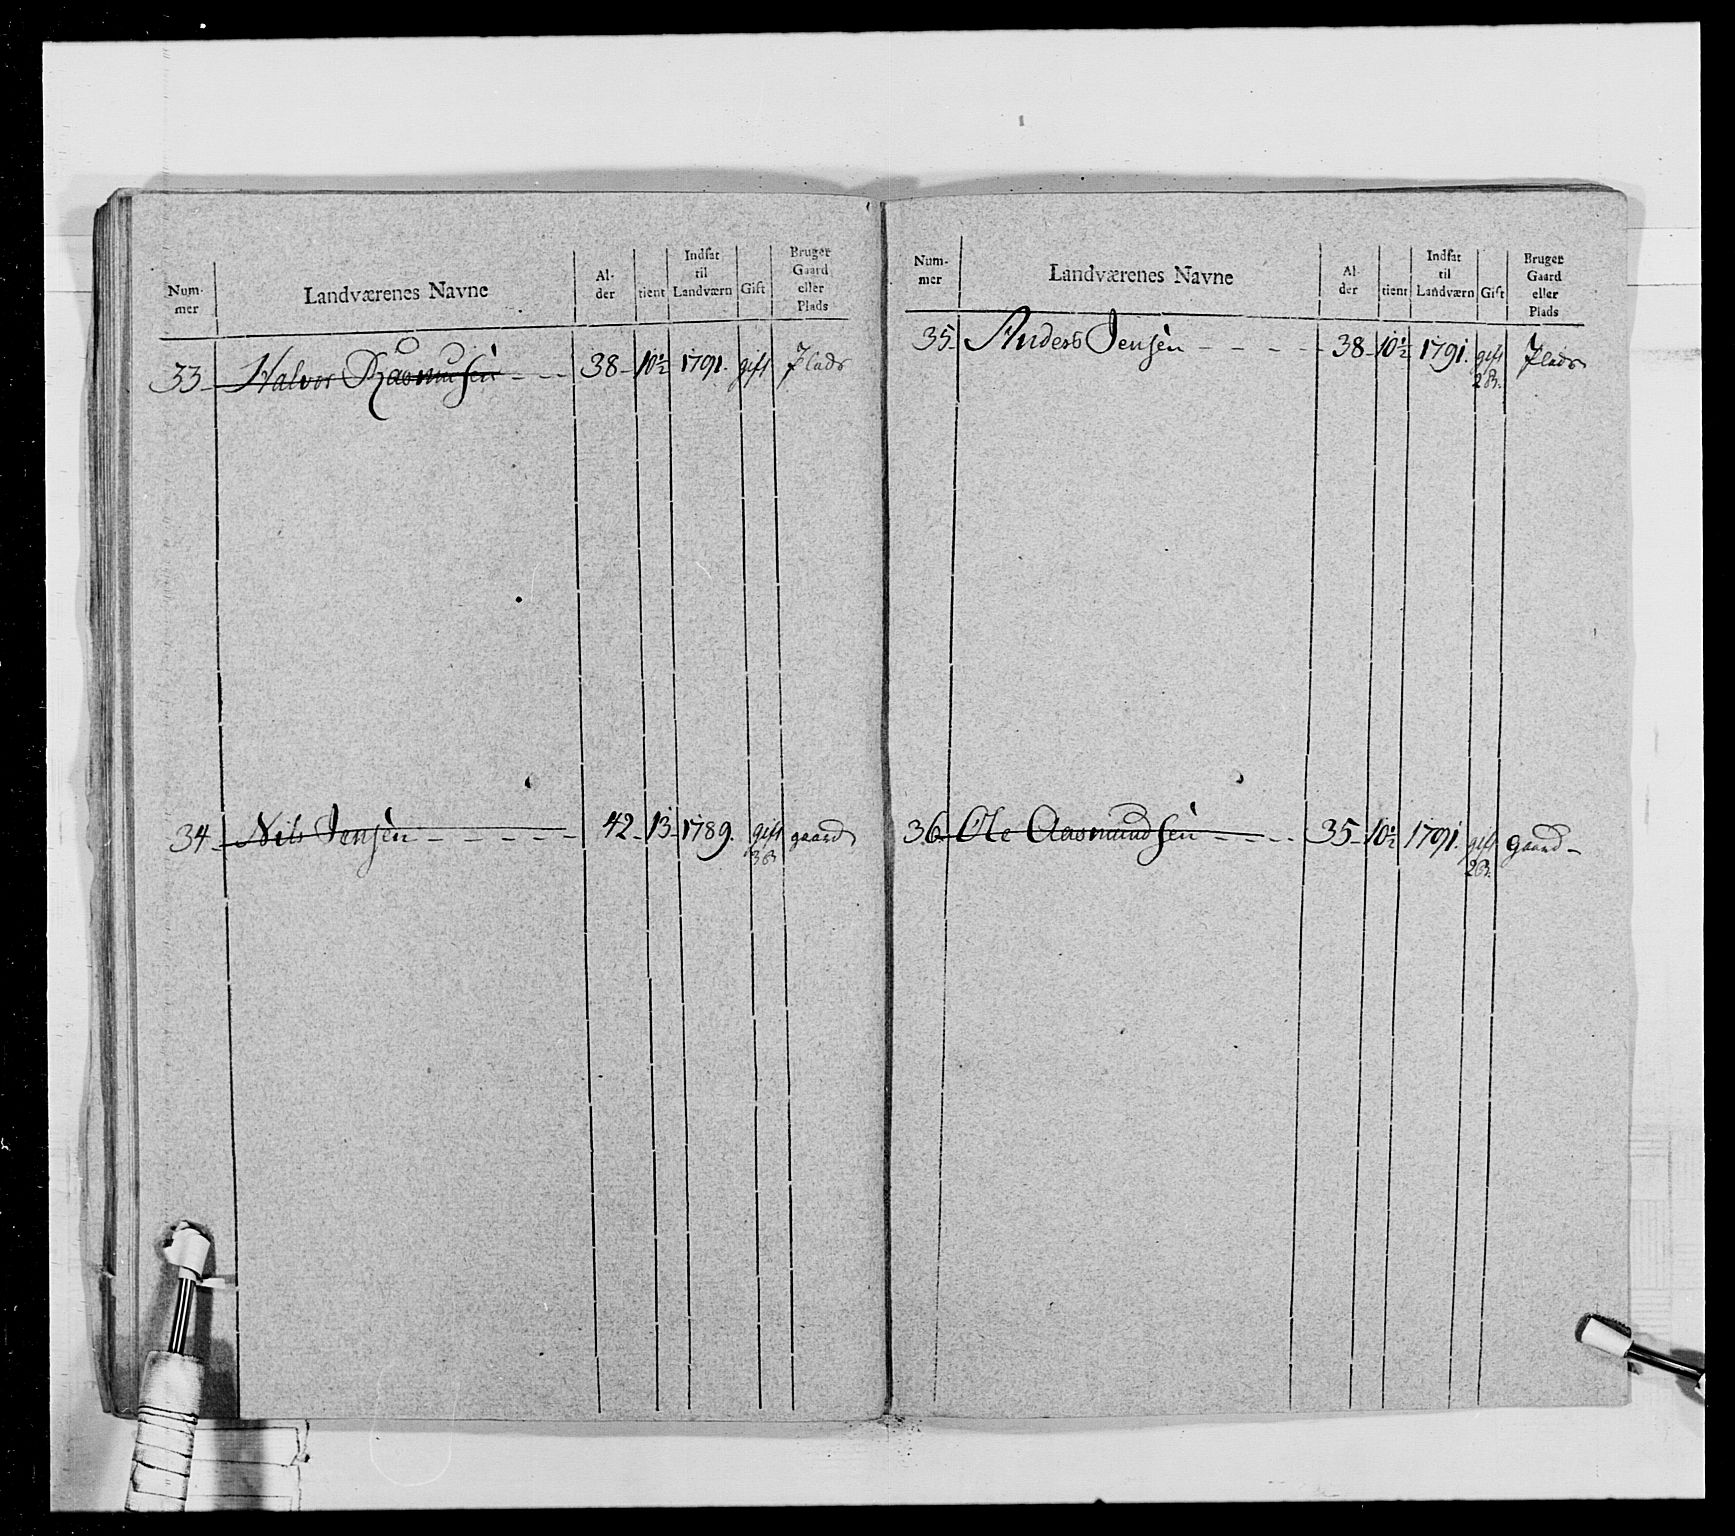 Num-
mer
Landværenes Navne
Al-
der
tient
Indsat
til
Landværn
Gift
Bruger
Gaard
eller
Plads
33 Halvor Rasmussen 38 10½ 1791. gift Plads
34 Nils Jensen 42 13 1789. gift gaard
3B
Num-
mer
Landværenes Navne
Al
der
tient
Indsat
til
Landværn
Gift
Bruger
Gaard
eller
Plads
35 Anders Jensen 38 10½ 1791. gift Plads
2B.
36 Ole Aasmundsen 35 10½ 1791. gift gaard
2B.